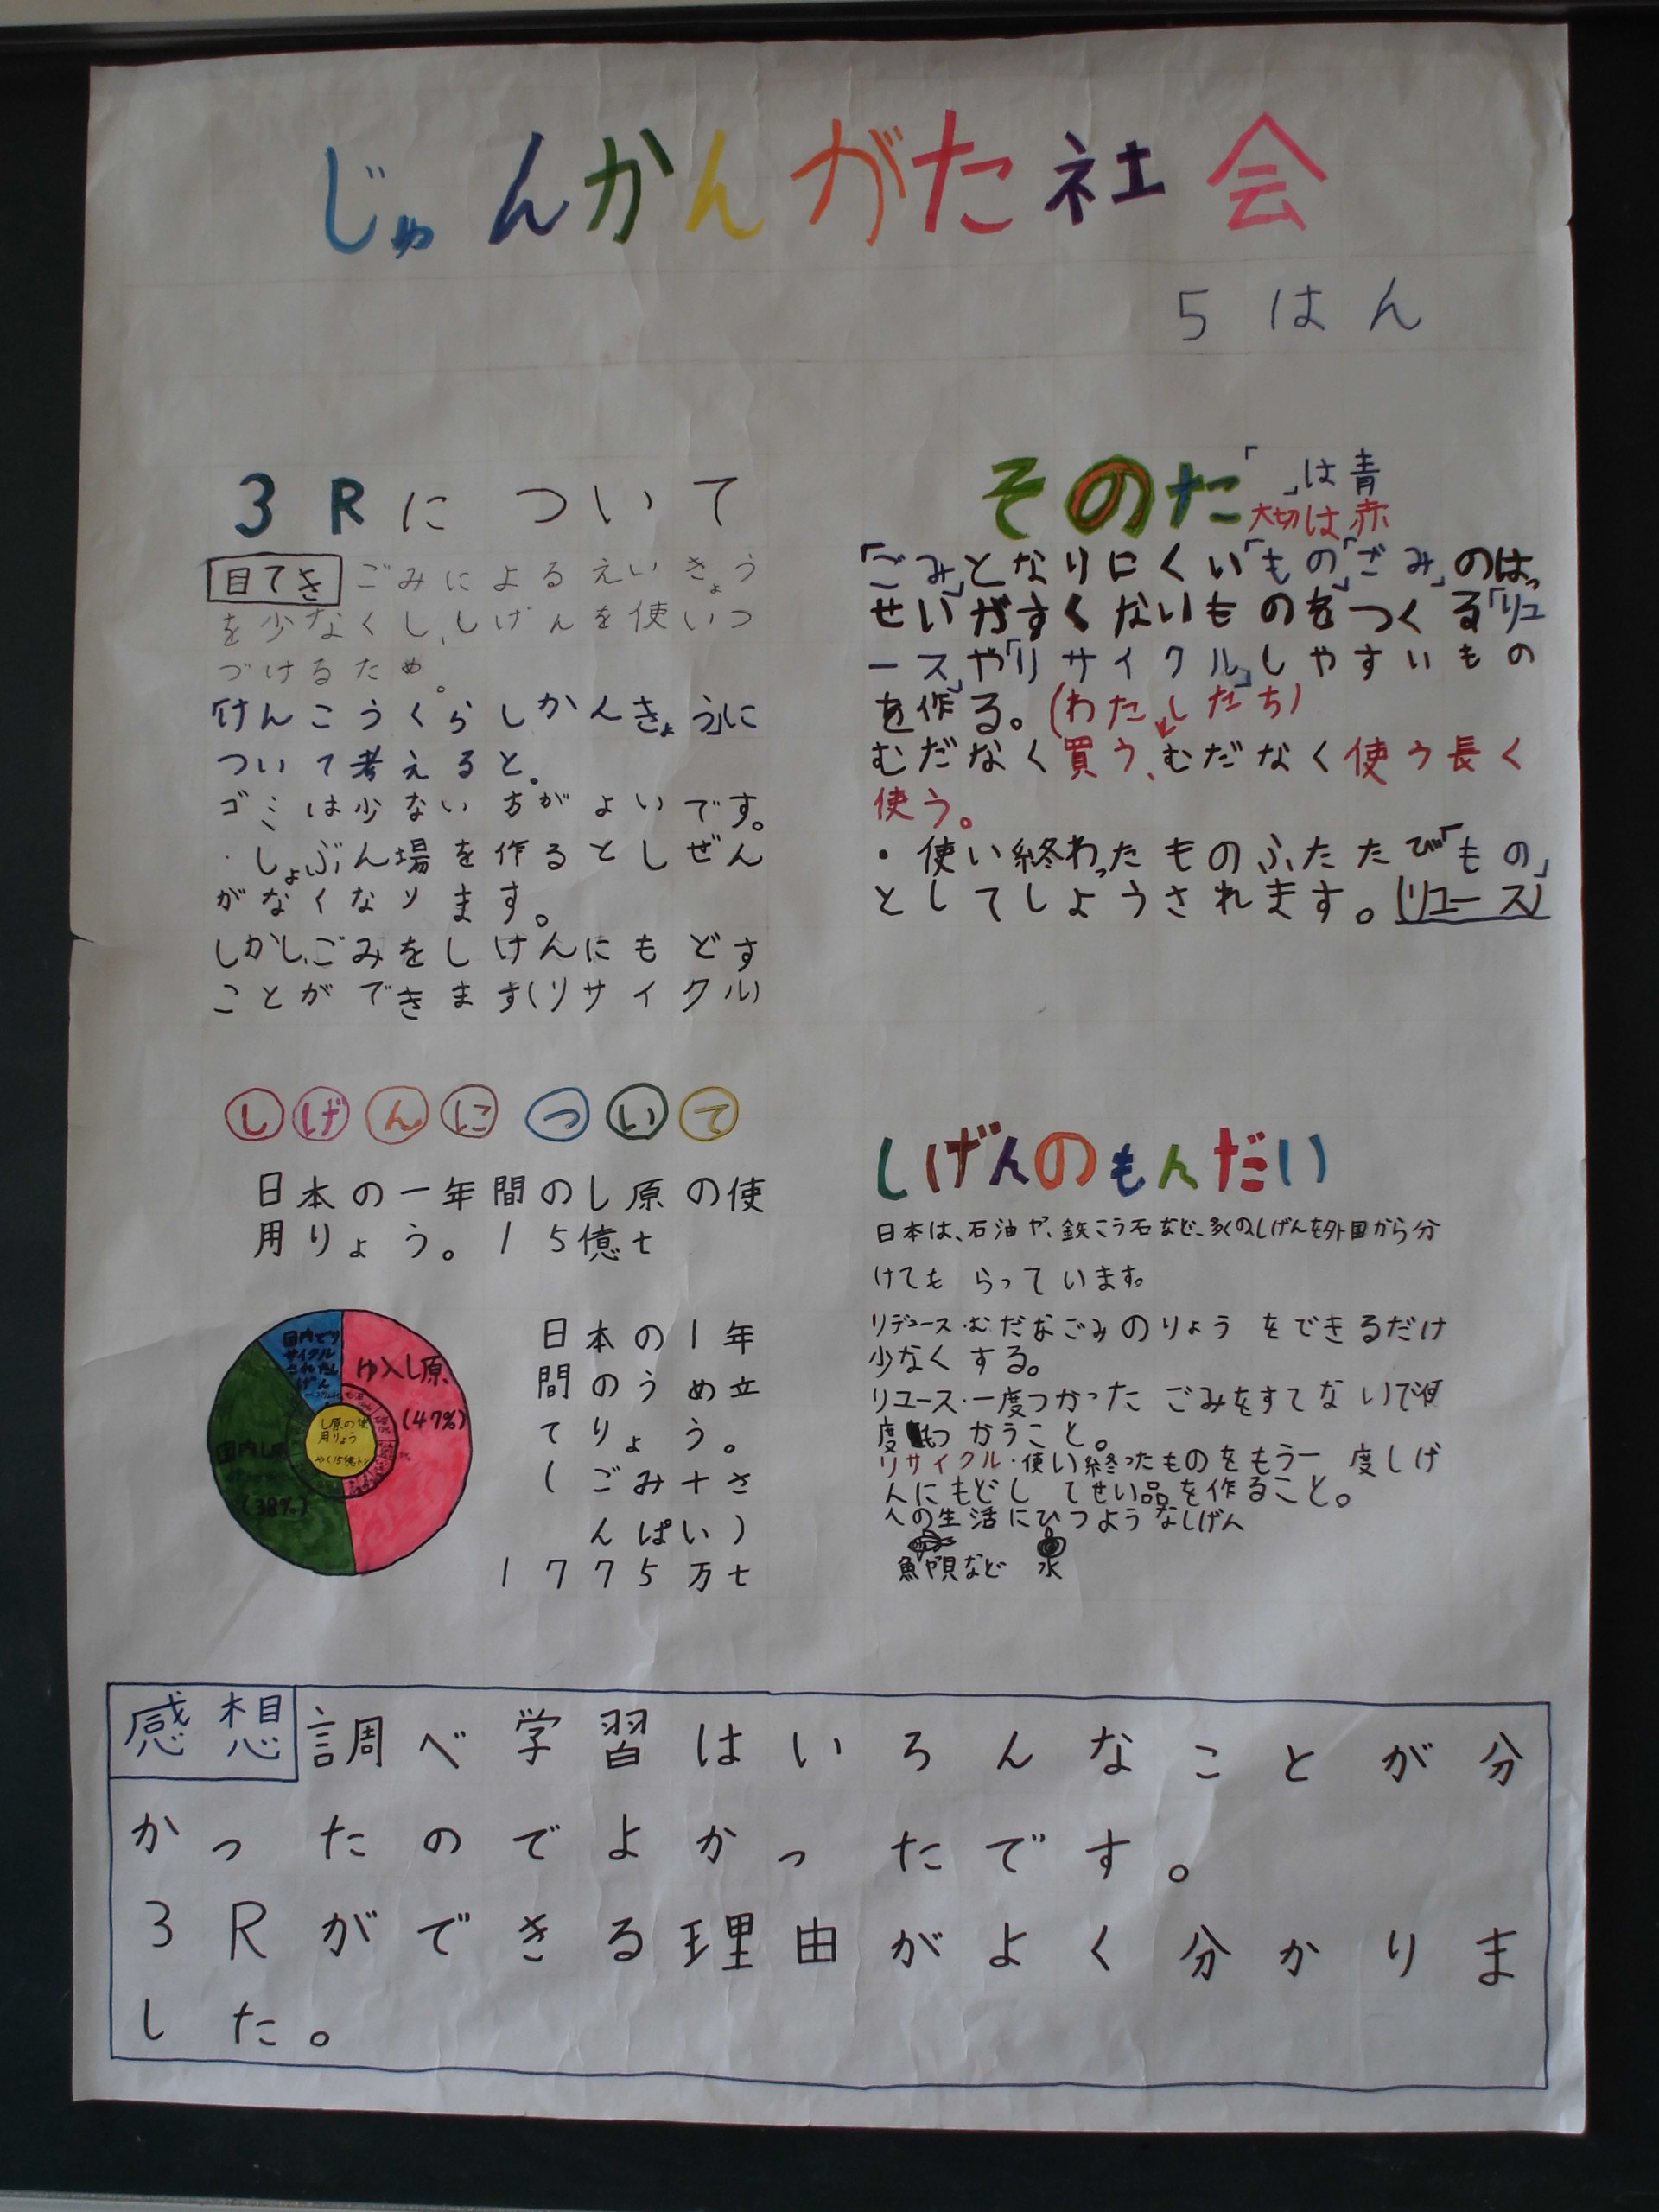 じゅんかんがた社会
5はん
3Rについて
目てき ごみによるえいきょう
を少なくし、しげんを使いつ
づけるため。
「けんこうくらしかんきょう」に
ついて考えると。
ゴミは少ない方がよいです。
・しょぶん場を作るとしぜん
がなくなります。
しかし、ごみをしげんにもどす
ことができます(リサイクル)
そのた
「」は青
大切は赤
「ごみ」となりにくい「もの」「ごみ」のはっ
せいがすくないものをつくる「リュ
ース」や「リサイクル」しやすいもの
を作る。(わたしたち)
むだなく買う、むだなく使う長く
使う。
・使い終わったものふたたび「もの」
としてしようされます。(リユース)
しげんについて
日本の一年間のし原の使
用りょう。15億t
ゆ入し原
(47%)
国内でリ
サイクル
されたし
げん
国内し原
(38%)
し原の使
用りょう
やく15億トン
日本の1年
間のうめ立
てりょう。
(ごみ+さ
んぱい)
1775万t
しげんのもんだい
日本は、石油や、鉄こう石など、多くのしげんを外国から分
けてもらっています。
リデュース・むだなごみのりょうをできるだけ
少なくする。
リユース・一度つかったごみをすてないで何
度もつかうこと。
リサイクル・使い終ったものをもう一度しげ
んにもどしてせい品を作ること。
人の生活にひつようなしげん
魚や貝など 水
感想 調べ学習はいろんなことが分
かったのでよかったです。
3Rができる理由がよく分かりま
した。